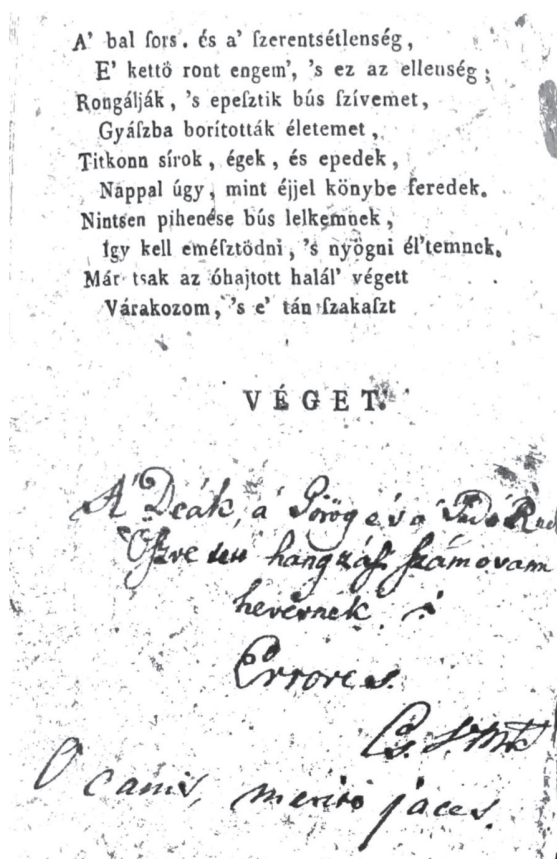 A' bal ſors. és a' ſzerentsétlenség,
E' kettö ront engem', 's ez az ellenség;
Rongálják, 's epeſztik bús ſzívemet,
Gyáſzba borították életemet,
Titkonn sírok, égek, és epedek,
Nappal úgy, mint éjjel könybe feredek.
Nintsen pihenése bús lelkemnek,
Így kell eméſztödni, 's nyögni él'temnek.
Már tsak az óhajtott halál' végett
Várakozom, 's e' tán ſzakaſzt
VÉGET.
A' Deák, a' Görög és a'
Öszve hangzás
hevernek.
Errores.
O canis, merito jaces.